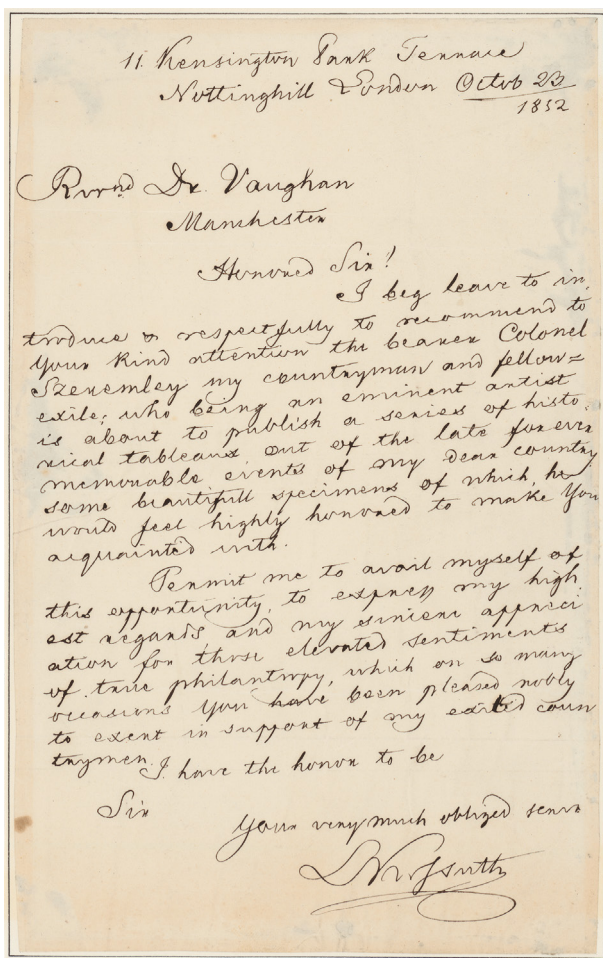 11. Kensington Park Terrace
Nottinghill London Octob 23
1852
Revrnd Dr. Vaughan
Manchester
Honored Sir!
I beg leave to in
troduce & respectfully to recommend to
Your kind attention the bearer Colonel
Szeremley my countryman and fellow=
exile; who being an eminent artist
is about to publish a series of histo-
rical tableaus out of the late forever
memorable events of my dear country
some beautifull specimens of which, he
would feel highly honored to make You
acquainted with.
Permit me to avail myself of
this opportunity, to express my high
est regards and my sincere appreci
ation for those elevated sentiments
of true philantropy, which on so many
occasions You have been pleased nobly
to exert in support of my exiled coun
trymen.
I have the honor to be
Sir
Your very much obliged serv
LKossuth